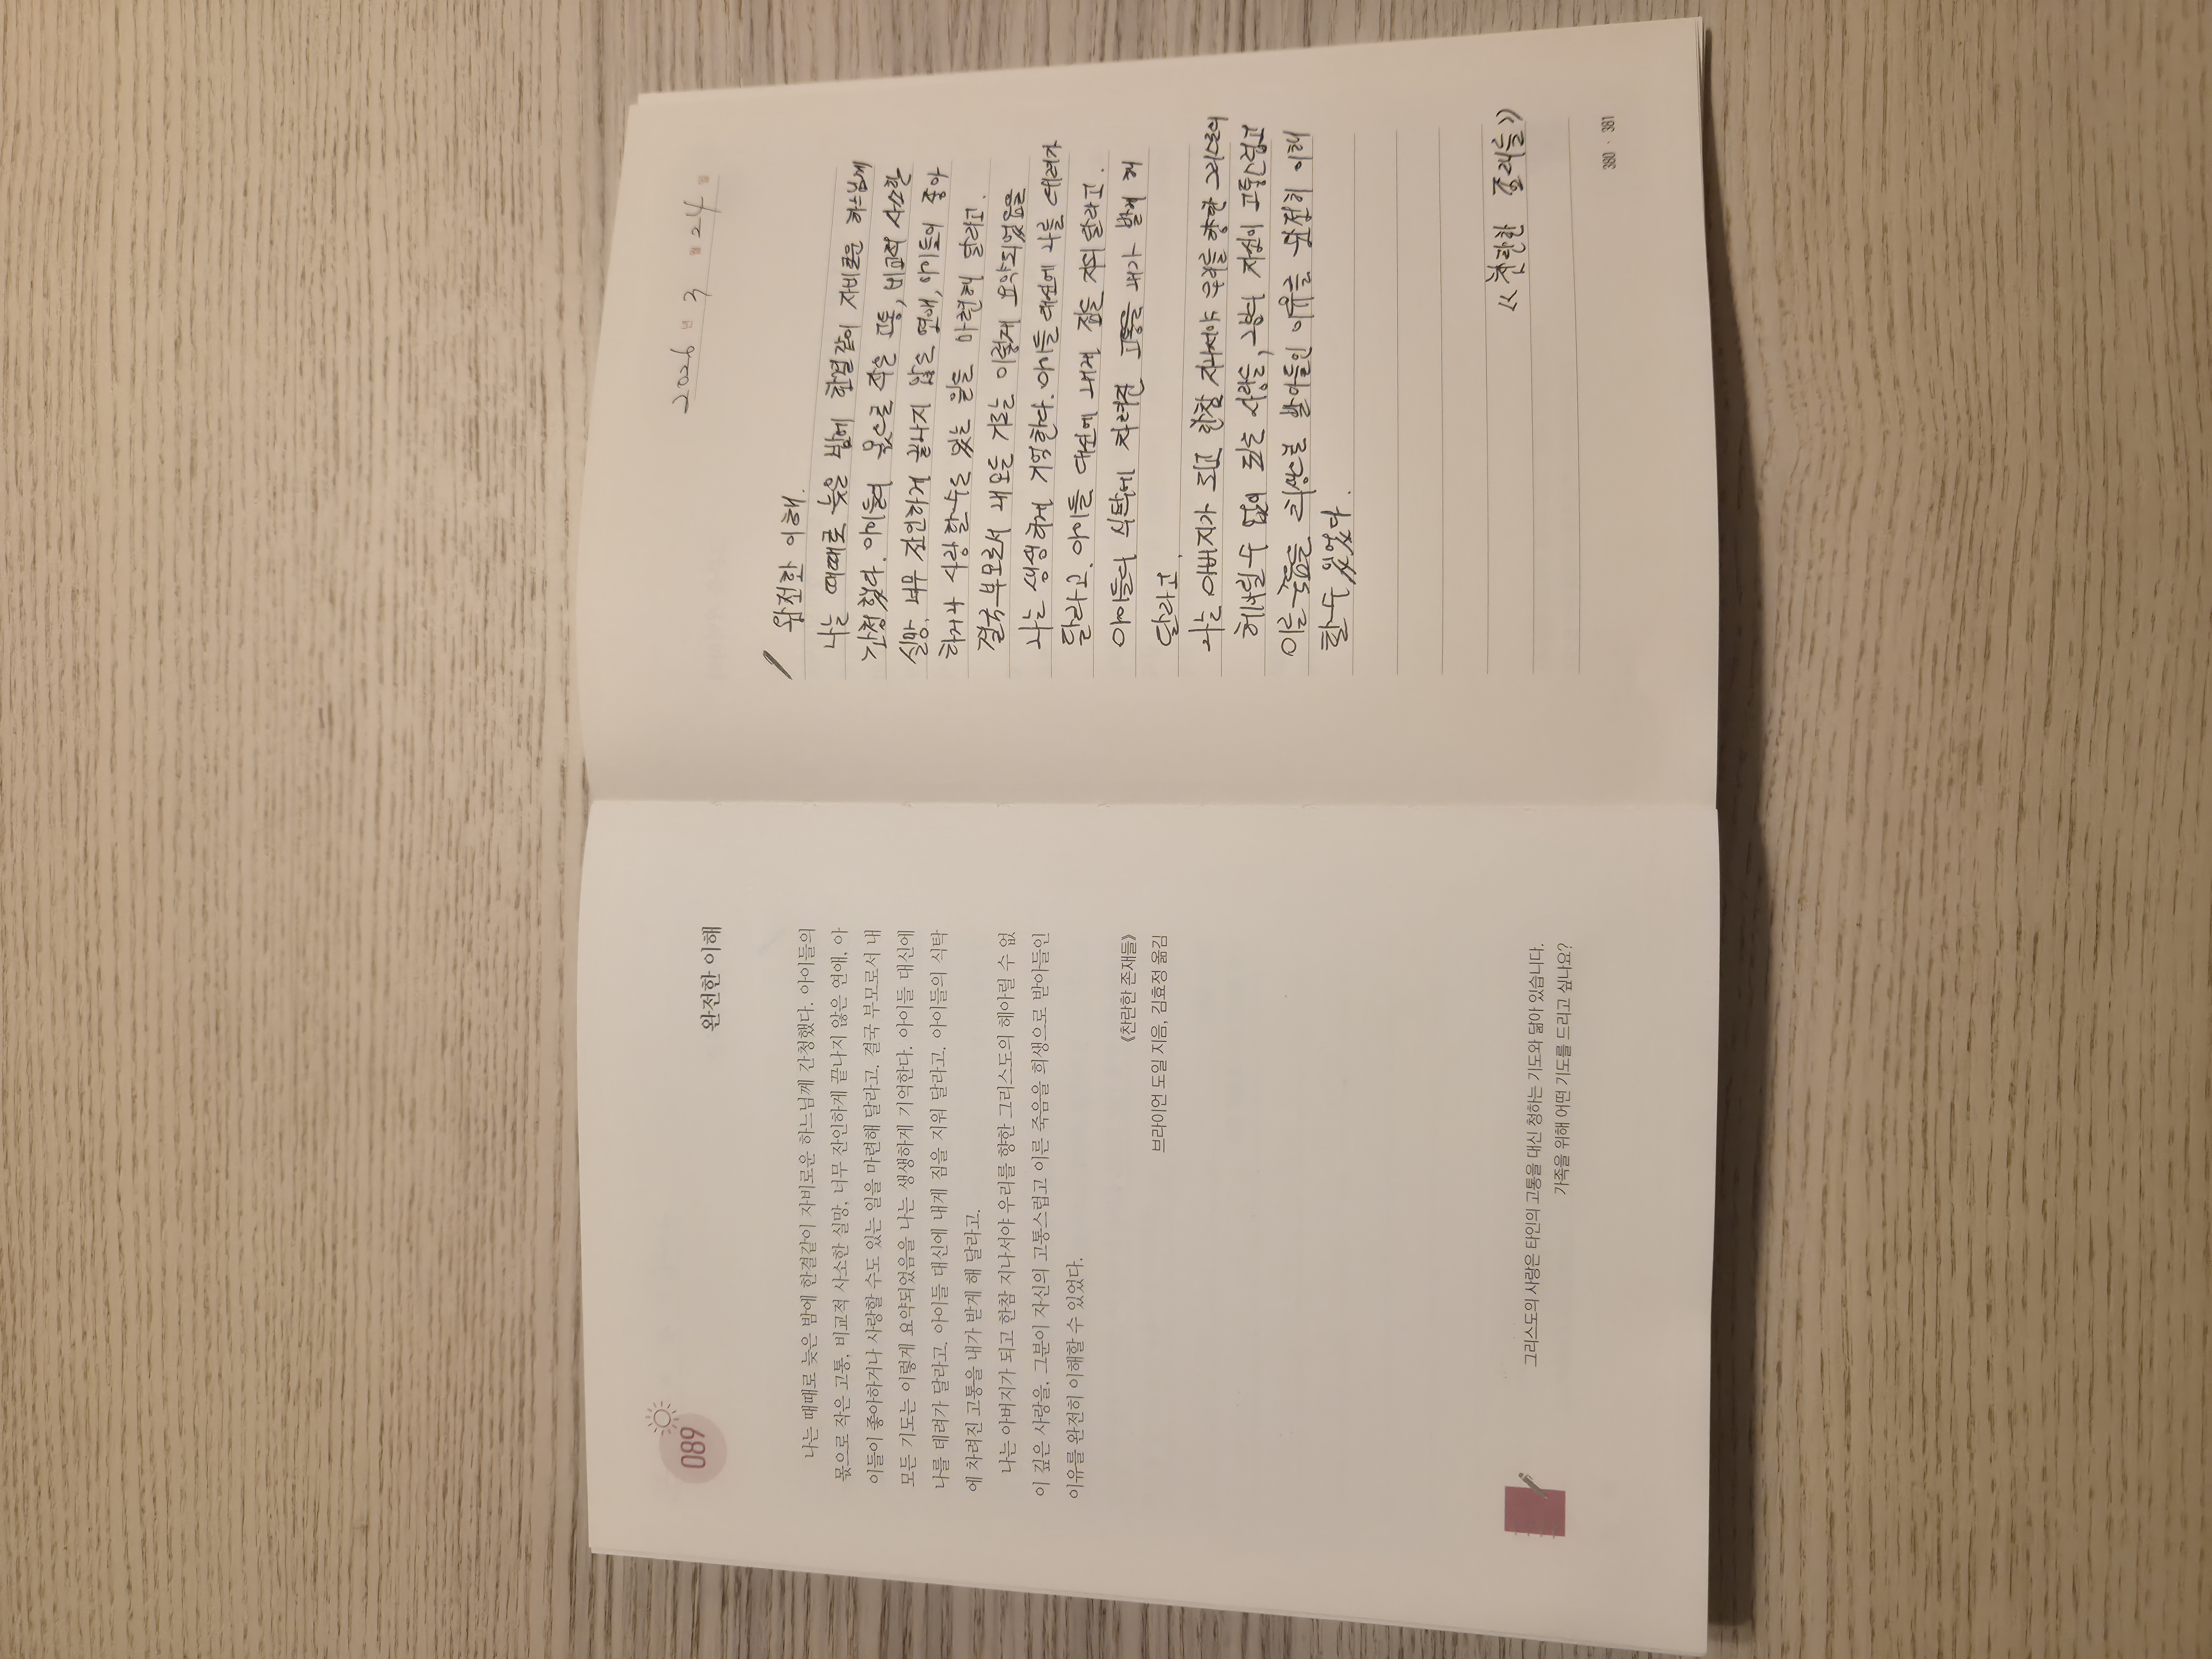 089
완전한 이해
나는 때때로 늦은 밤에 한결같이 자비로운 하느님께 간청했다. 아이들의
몫으로 작은 고통, 비교적 사소한 실망, 너무 잔인하게 끝나지 않은 연애, 아
이들이 좋아하거나 사랑할 수도 있는 일을 마련해 달라고. 결국 부모로서 내
모든 기도는 이렇게 요약되었음을 나는 생생하게 기억한다. 아이들 대신에
나를 데려가 달라고. 아이들 대신에 내게 짐을 지워 달라고. 아이들의 식탁
에 차려진 고통을 내가 받게 해 달라고.
나는 아버지가 되고 한참 지나서야 우리를 향한 그리스도의 헤아릴 수 없
이 깊은 사랑을, 그분이 자신의 고통스럽고 이른 죽음을 희생으로 받아들인
이유를 완전히 이해할 수 있었다.
《찬란한 존재들》
브라이언 도일 지음, 김효정 옮김
그리스도의 사랑은 타인의 고통을 대신 청하는 기도와 닮아 있습니다.
가족을 위해 어떤 기도를 드리고 싶나요?
2026 년 3 월 24 일
완전한 이해.
나는 때때로 늦은 밤에 한결같이 자비로운 하느님께
간청했다. 아이들의 몫으로 작은 고통, 비교적 사소한
실망, 너무 잔인하게 끝나지 않은 연애, 아이들이 좋아
하거나 사랑할 수도 있는 일을 마련해 달라고.
결국 부모로서 내 모든 기도는 이렇게 요약되었음을
나는 생생하게 기억한다. 아이들 대신에 나를 데려가
달라고. 아이들 대신에 내게 짐을 지워 달라고.
아이들의 식탁에 차려진 고통을 내가 받게 해
달라고.
나는 아버지가 되고 한참 지나서야 우리를 향한 그리스도의
헤아릴 수 없이 깊은 사랑을, 그분이 자신의 고통스럽고
이른 죽음을 희생으로 받아들인 이유를 완전히 이해
할 수 있었다.
《찬란한 존재들》
380 · 381